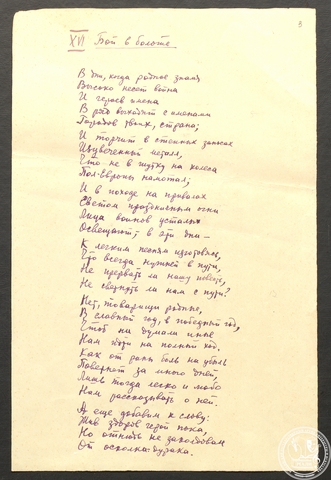 3
XVI Бой в болоте.
В дни, когда родное знамя
Высоко несет война
И героев имена
В ряд выходят с именами
Городов твоих, страна;
И торчит в степных заносах
Изувеченный металл,
Что не в шутку на колеса
Пол-Европы намотал;
И в походе на привалах
Светом праздничным огни
Лица воинов усталых
Освещают, – в эти дни –
К легким песням
Что всегда нужней в пути,
Не прервать ли нашу повесть,
Не свернуть ли нам с пути?
Нет, товарищи родные,
В славный год, в победный год,
Чтоб ни думали иные
Нам идти на полный ход.
Как от раны боль на убыль
Повернет за много дней,
Лишь тогда легко и любо
Нам рассказывать о ней.
А еще добавим к слову:
Жив-здоров герой пока,
Но отнюдь не заколдован
От осколка-дурака.